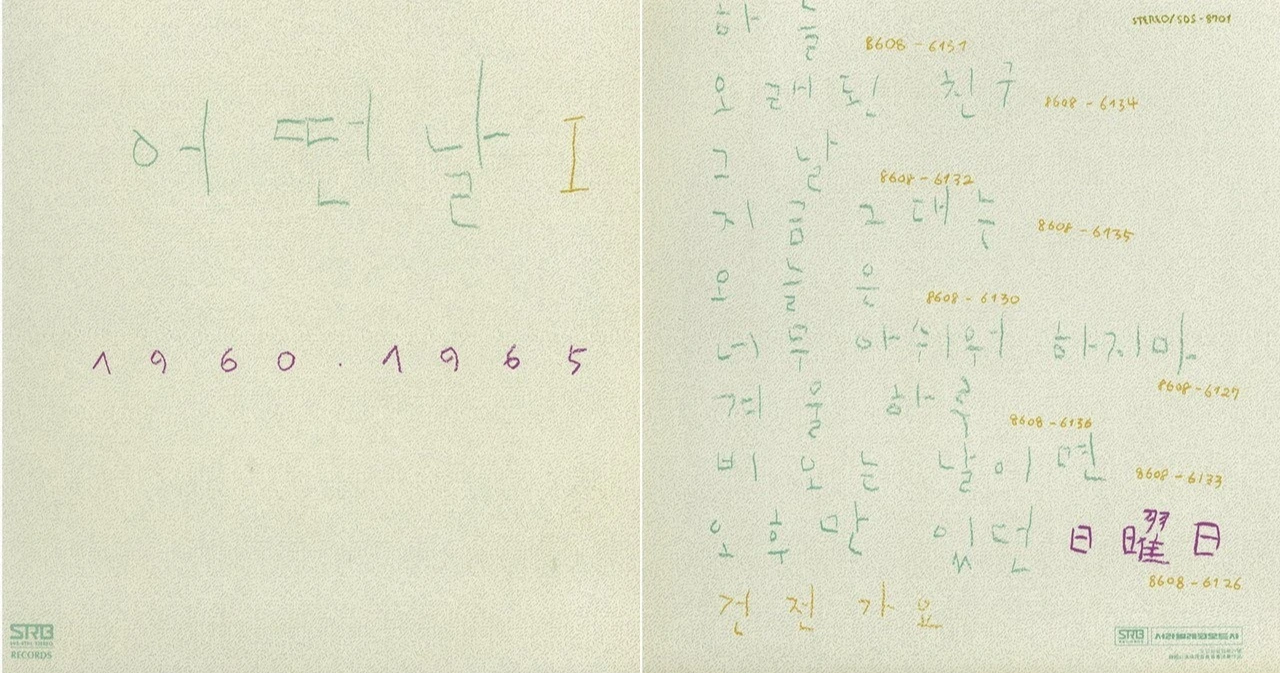 어떤날 I
1960.1965
SRB
RECORDS
STEREO/SDS-8701
하늘
8608-6131
오래된 친구
8608-6134
그날
8608-6132
지금 그대는
8608-6135
오늘은
8608-6130
너무 아쉬워 하지마
8608-6127
겨울 하루
8608-6136
비오는 날이면
8608-6133
오후만 있던 日曜日
8608-6126
건전가요
SRB 서라벌레코드사